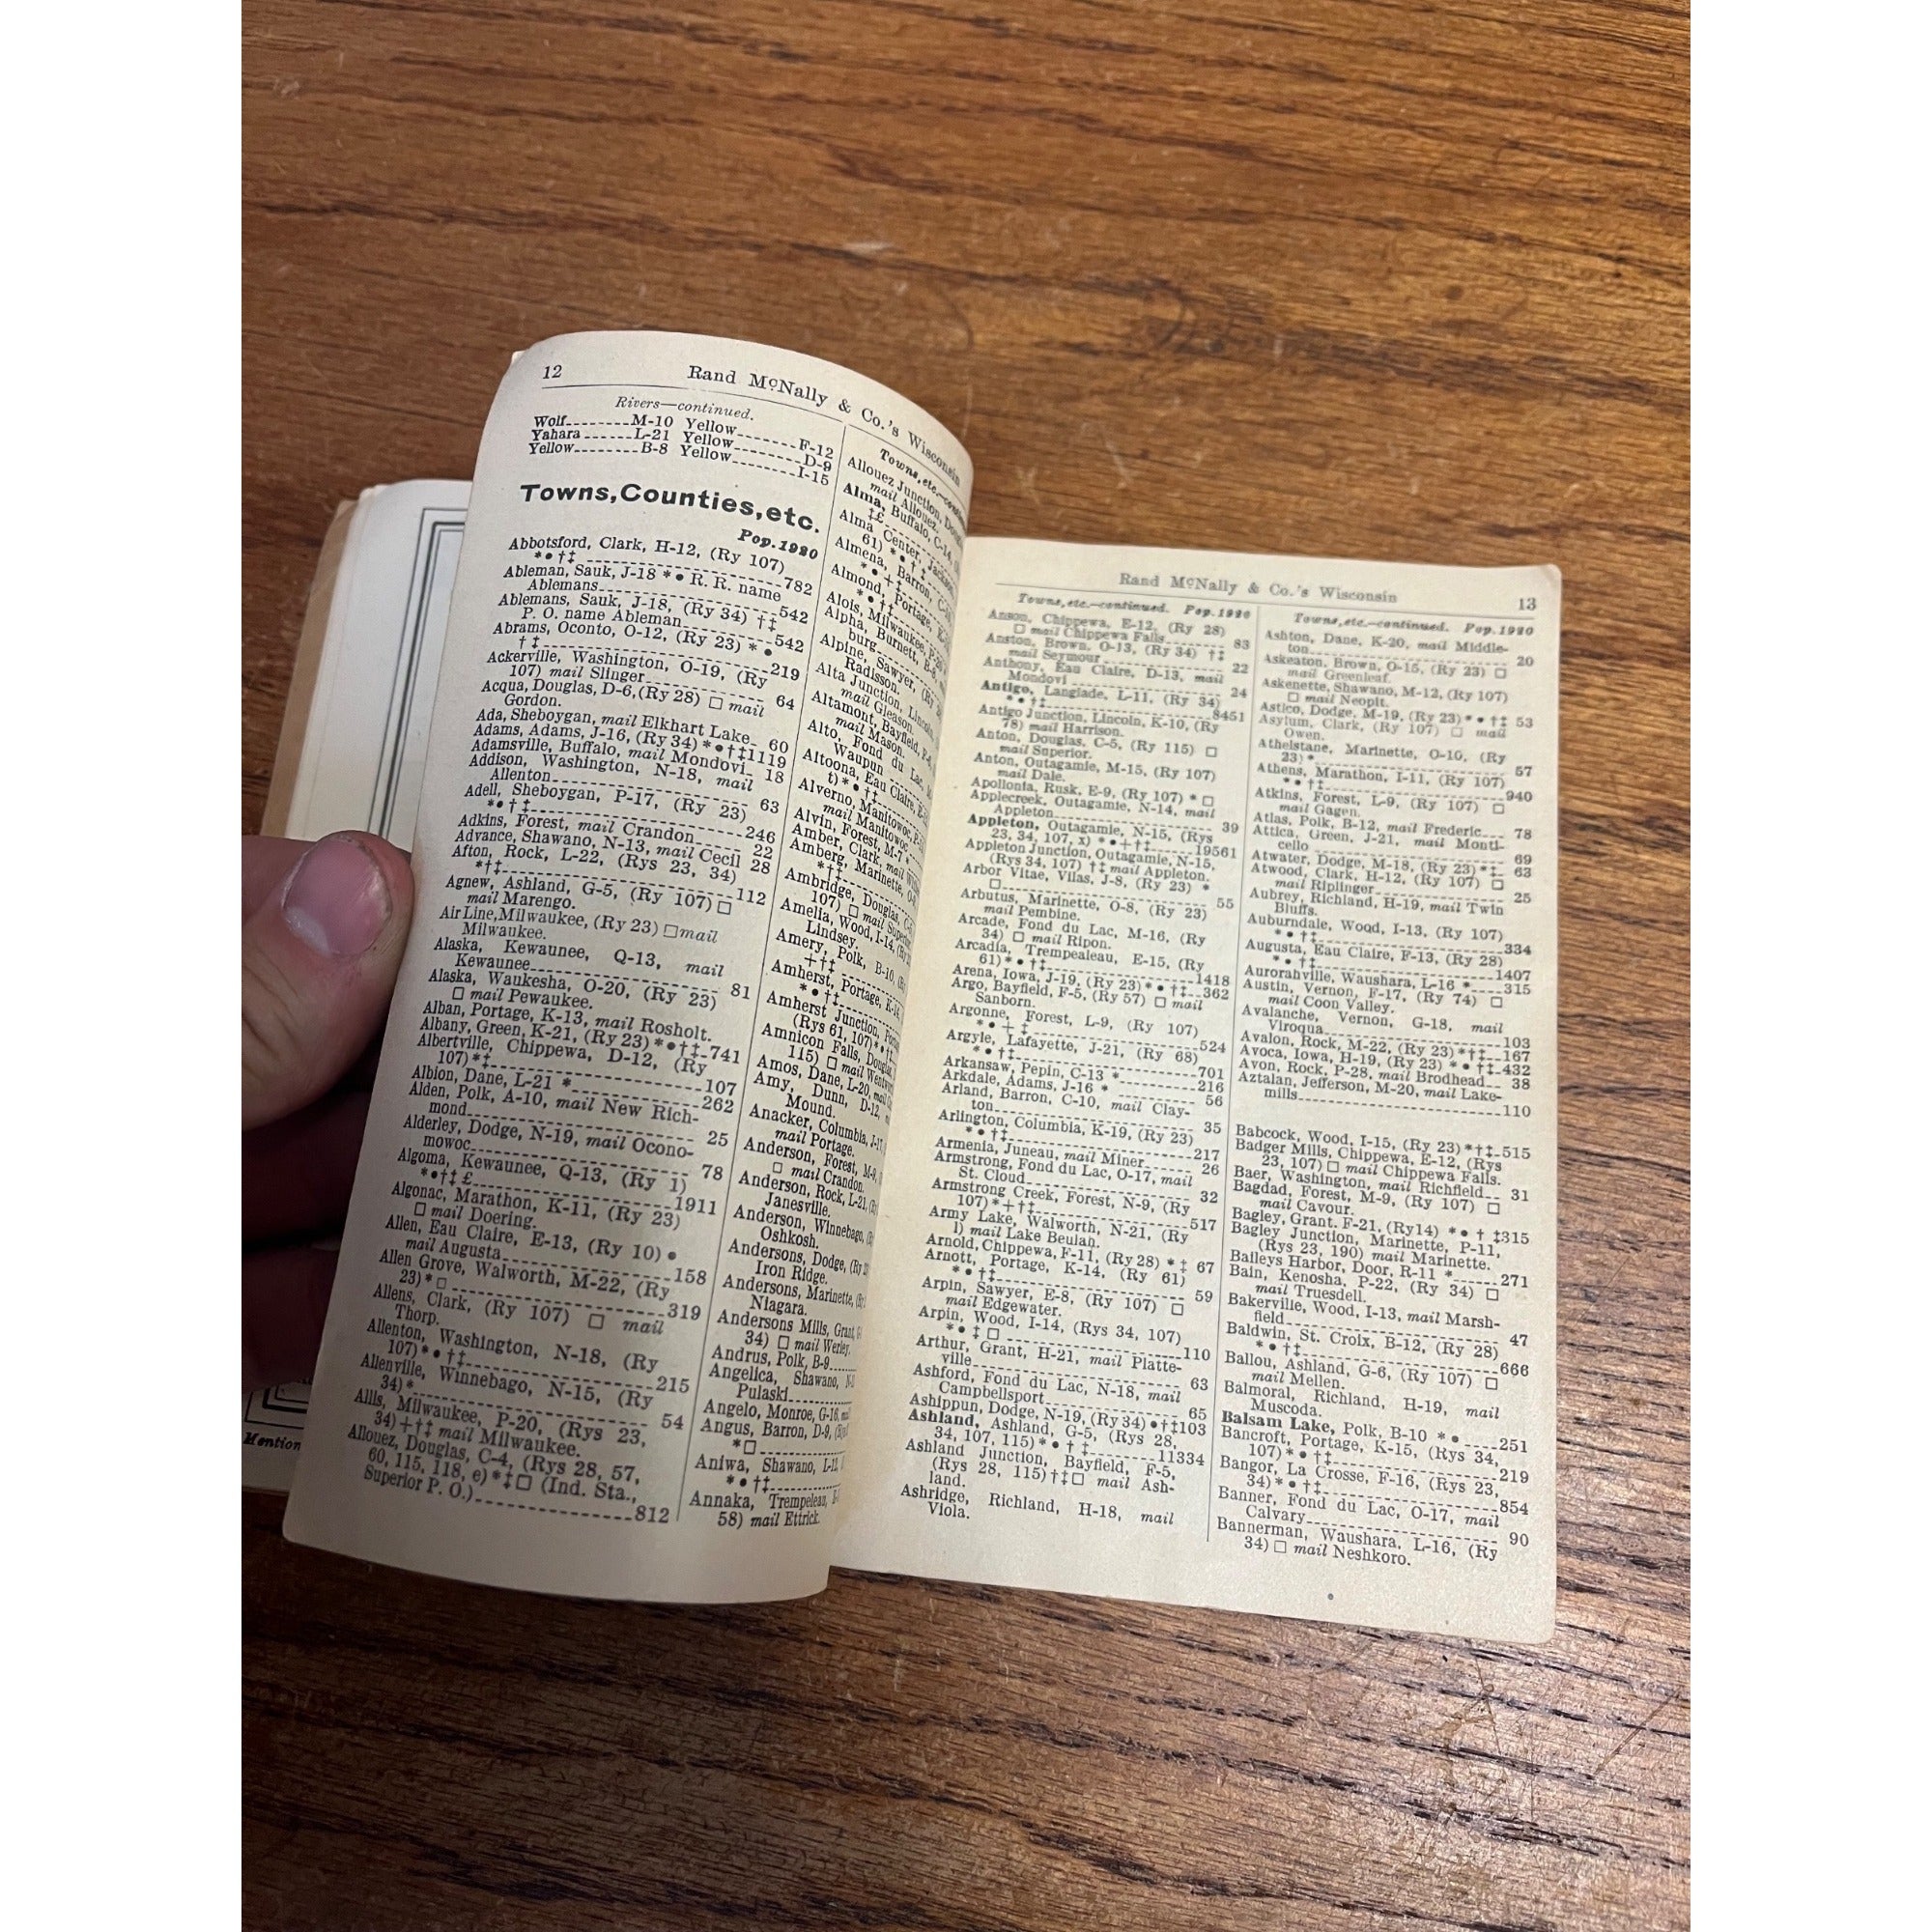 12
Rand McNally & Co.'s Wisconsin
Rivers—continued.
Wolf M-10 Yellow F-12
Yahara L-21 Yellow D-9
Yellow B-8 Yellow I-15
Towns, Counties, etc.
Pop. 1920
Abbotsford, Clark, H-12, (Ry 107)
*●†‡ 782
Ableman, Sauk, J-18 *● R. R. name
Ablemans 542
Ablemans, Sauk, J-18, (Ry 34) †‡
P. O. name Ableman 542
Abrams, Oconto, O-12, (Ry 23) *●
†‡ 219
Ackerville, Washington, O-19, (Ry
107) mail Slinger 64
Acqua, Douglas, D-6, (Ry 28) □ mail
Gordon.
Ada, Sheboygan, mail Elkhart Lake 60
Adams, Adams, J-16, (Ry 34) *●†‡ 1119
Adamsville, Buffalo, mail Mondovi 18
Addison, Washington, N-18, mail
Allenton 63
Adell, Sheboygan, P-17, (Ry 23)
*●†‡ 246
Adkins, Forest, mail Crandon 22
Advance, Shawano, N-13, mail Cecil 28
Afton, Rock, L-22, (Rys 23, 34)
*†‡ 112
Agnew, Ashland, G-5, (Ry 107) □
mail Marengo.
Air Line, Milwaukee, (Ry 23) □ mail
Milwaukee.
Alaska, Kewaunee, Q-13, mail
Kewaunee 81
Alaska, Waukesha, O-20, (Ry 23)
□ mail Pewaukee.
Alban, Portage, K-13, mail Rosholt.
Albany, Green, K-21, (Ry 23) *●†‡ 741
Albertville, Chippewa, D-12, (Ry
107) *‡ 107
Albion, Dane, L-21 * 262
Alden, Polk, A-10, mail New Rich-
mond 25
Alderley, Dodge, N-19, mail Ocono-
mowoc 78
Algoma, Kewaunee, Q-13, (Ry 1)
*●†‡ £ 1911
Algonac, Marathon, K-11, (Ry 23)
□ mail Doering.
Allen, Eau Claire, E-13, (Ry 10) ●
mail Augusta 158
Allen Grove, Walworth, M-22, (Ry
23) * □ 319
Allens, Clark, (Ry 107) □ mail
Thorp.
Allenton, Washington, N-18, (Ry
107) *●†‡ 215
Allenville, Winnebago, N-15, (Ry
34) * 54
Allis, Milwaukee, P-20, (Rys 23,
34) +†‡ mail Milwaukee.
Allouez, Douglas, C-4, (Rys 28, 57,
60, 115, 118, e) *‡□ (Ind. Sta.,
Superior P. O.) 812
Towns, etc.—continued
Allouez Junction,
mail Allouez.
Alma, Buffalo, C-14,
‡£
Alma Center, Jackson,
61) *●†‡
Almena, Barron,
Almond, Portage,
Alois, Milwaukee, P-20
Alpha, Burnett, B-8,
burg
Alpine, Sawyer, (Ry
Radisson.
Alta Junction, Lincoln,
mail Gleason.
Altamont, Bayfield, F-5,
mail Mason.
Alto, Fond du Lac,
Waupun
Altoona, Eau Claire,
t) *●†‡
Alverno, Manitowoc,
mail Manitowoc.
Alvin, Forest, M-7 *
Amber, Clark, mail
Amberg, Marinette, O-8
*†‡
Ambridge, Douglas,
107) □ mail Superior
Amelia, Wood, I-14, (Ry
Lindsey.
Amery, Polk, B-10,
+†‡
Amherst, Portage, K-14,
*●†‡
Amherst Junction,
(Rys 61, 107) *●†‡
Amnicon Falls, Douglas,
115) □ mail Wentworth
Amos, Dane, L-20, mail
Amy, Dunn, D-12,
Mound.
Anacker, Columbia, J-17,
mail Portage.
Anderson, Forest, M-9,
□ mail Crandon.
Anderson, Rock, L-21,
Janesville.
Anderson, Winnebago,
Oshkosh.
Andersons, Dodge, (Ry
Iron Ridge.
Andersons, Marinette,
Niagara.
Andersons Mills, Grant,
34) □ mail Werley.
Andrus, Polk, B-9
Angelica, Shawano,
Pulaski
Angelo, Monroe, G-16, mail
Angus, Barron, D-9,
*□
Aniwa, Shawano, L-12,
*●†‡
Annaka, Trempeleau,
58) mail Ettrick.
Rand McNally & Co.'s Wisconsin
13
Towns, etc.—continued. Pop. 1920
Anson, Chippewa, E-12, (Ry 28)
□ mail Chippewa Falls 83
Anston, Brown, O-13, (Ry 34) †‡
mail Seymour 22
Anthony, Eau Claire, D-13, mail
Mondovi 24
Antigo, Langlade, L-11, (Ry 34)
*●†‡ 8451
Antigo Junction, Lincoln, K-10, (Ry
78) mail Harrison.
Anton, Douglas, C-5, (Ry 115) □
mail Superior.
Anton, Outagamie, M-15, (Ry 107)
mail Dale.
Apollonia, Rusk, E-9, (Ry 107) * □
Applecreek, Outagamie, N-14, mail
Appleton 39
Appleton, Outagamie, N-15, (Rys
23, 34, 107, x) *●+†‡ 19561
Appleton Junction, Outagamie, N-15,
(Rys 34, 107) †‡ mail Appleton.
Arbor Vitae, Vilas, J-8, (Ry 23) *
□ 55
Arbutus, Marinette, O-8, (Ry 23)
mail Pembine.
Arcade, Fond du Lac, M-16, (Ry
34) □ mail Ripon.
Arcadia, Trempealeau, E-15, (Ry
61) *●†‡ 1418
Arena, Iowa, J-19, (Ry 23) *●†‡ 362
Argo, Bayfield, F-5, (Ry 57) □ mail
Sanborn.
Argonne, Forest, L-9, (Ry 107)
*●+‡ 524
Argyle, Lafayette, J-21, (Ry 68)
*●†‡ 701
Arkansaw, Pepin, C-13 * 216
Arkdale, Adams, J-16 * 56
Arland, Barron, C-10, mail Clay-
ton 35
Arlington, Columbia, K-19, (Ry 23)
*●†‡ 217
Armenia, Juneau, mail Miner 26
Armstrong, Fond du Lac, O-17, mail
St. Cloud 32
Armstrong Creek, Forest, N-9, (Ry
107) *+†‡ 517
Army Lake, Walworth, N-21, (Ry
l) mail Lake Beulah.
Arnold, Chippewa, F-11, (Ry 28) *‡ 67
Arnott, Portage, K-14, (Ry 61)
*●†‡ 59
Arpin, Sawyer, E-8, (Ry 107) □
mail Edgewater.
Arpin, Wood, I-14, (Rys 34, 107)
*●‡□ 110
Arthur, Grant, H-21, mail Platte-
ville 63
Ashford, Fond du Lac, N-18, mail
Campbellsport 65
Ashippun, Dodge, N-19, (Ry 34) ●†‡ 103
Ashland, Ashland, G-5, (Rys 28,
34, 107, 115) *●†‡ 11334
Ashland Junction, Bayfield, F-5,
(Rys 28, 115) †‡□ mail Ash-
land.
Ashridge, Richland, H-18, mail
Viola.
Towns, etc.—continued. Pop. 1920
Ashton, Dane, K-20, mail Middle-
ton 20
Askeaton, Brown, O-15, (Ry 23) □
mail Greenleaf.
Askenette, Shawano, M-12, (Ry 107)
□ mail Neopit.
Astico, Dodge, M-19, (Ry 23) *●†‡ 53
Asylum, Clark, (Ry 107) □ mail
Owen.
Athelstane, Marinette, O-10, (Ry
23) * 57
Athens, Marathon, I-11, (Ry 107)
*●†‡ 940
Atkins, Forest, L-9, (Ry 107) □
mail Gagen.
Atlas, Polk, B-12, mail Frederic 78
Attica, Green, J-21, mail Monti-
cello 69
Atwater, Dodge, M-18, (Ry 23) *‡ 63
Atwood, Clark, H-12, (Ry 107) □
mail Riplinger 25
Aubrey, Richland, H-19, mail Twin
Bluffs.
Auburndale, Wood, I-13, (Ry 107)
*●†‡ 334
Augusta, Eau Claire, F-13, (Ry 28)
*●†‡ 1407
Aurorahville, Waushara, L-16 * 315
Austin, Vernon, F-17, (Ry 74) □
mail Coon Valley.
Avalanche, Vernon, G-18, mail
Viroqua 103
Avalon, Rock, M-22, (Ry 23) *†‡ 167
Avoca, Iowa, H-19, (Ry 23) *●†‡ 432
Avon, Rock, P-28, mail Brodhead 38
Aztalan, Jefferson, M-20, mail Lake-
mills 110
Babcock, Wood, I-15, (Ry 23) *†‡ 515
Badger Mills, Chippewa, E-12, (Rys
23, 107) □ mail Chippewa Falls.
Baer, Washington, mail Richfield 31
Bagdad, Forest, M-9, (Ry 107) □
mail Cavour.
Bagley, Grant, F-21, (Ry14) *●†‡ 315
Bagley Junction, Marinette, P-11,
(Rys 23, 190) mail Marinette.
Baileys Harbor, Door, R-11 * 271
Bain, Kenosha, P-22, (Ry 34) □
mail Truesdell.
Bakerville, Wood, I-13, mail Marsh-
field 47
Baldwin, St. Croix, B-12, (Ry 28)
*●†‡ 666
Ballou, Ashland, G-6, (Ry 107) □
mail Mellen.
Balmoral, Richland, H-19, mail
Muscoda.
Balsam Lake, Polk, B-10 *● 251
Bancroft, Portage, K-15, (Rys 34,
107) *●†‡ 219
Bangor, La Crosse, F-16, (Rys 23,
34) *●†‡ 854
Banner, Fond du Lac, O-17, mail
Calvary 90
Bannerman, Waushara, L-16, (Ry
34) □ mail Neshkoro.
Mention